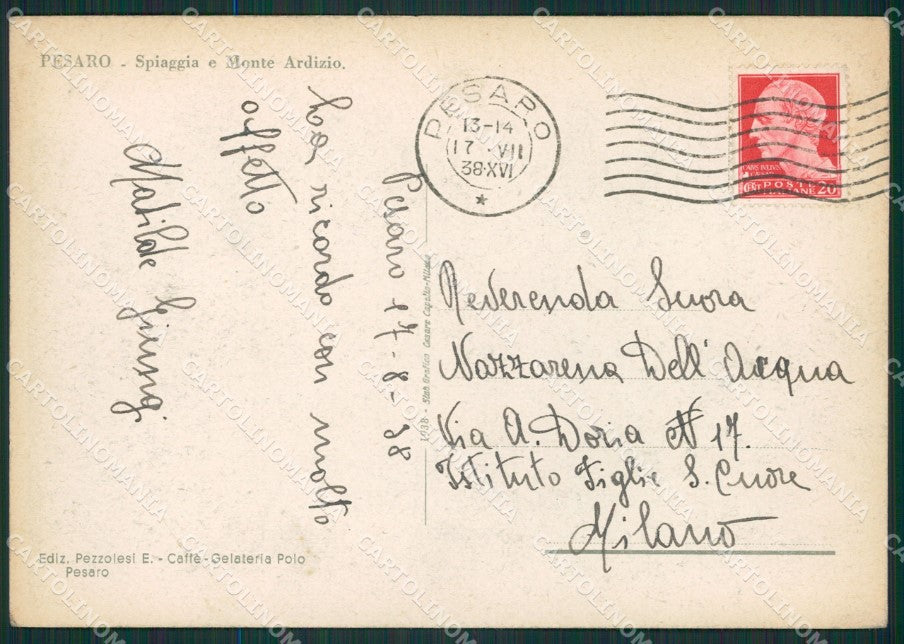 PESARO - Spiaggia e Monte Ardizio.
PESARO
13-14
17 · VII
38·XVI
POSTE
20
Pesaro 17-8-38
La ricordo con molto
affetto
Matilde
Reverenda Suora
Nazzarena Dell'Acqua
Via A. Doria N 17.
Istituto Figlie S. Cuore
Milano
1938 - Stab. Grafico Cesare Capello-Milano
Ediz. Pezzolesi E. - Caffè-Gelateria Polo
Pesaro
CARTOLINOMANIA